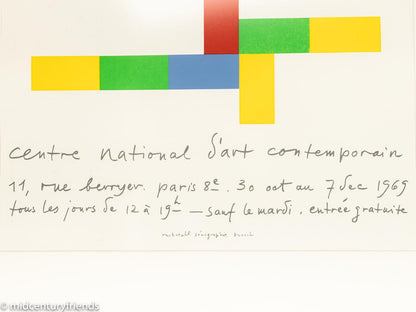 centre national d'art contemporain
11, rue berryer. paris 8e. 30 oct au 7 dec 1969
tous les jours de 12 à 19h — sauf le mardi. entrée gratuite
sérigraphie
© midcenturyfriends